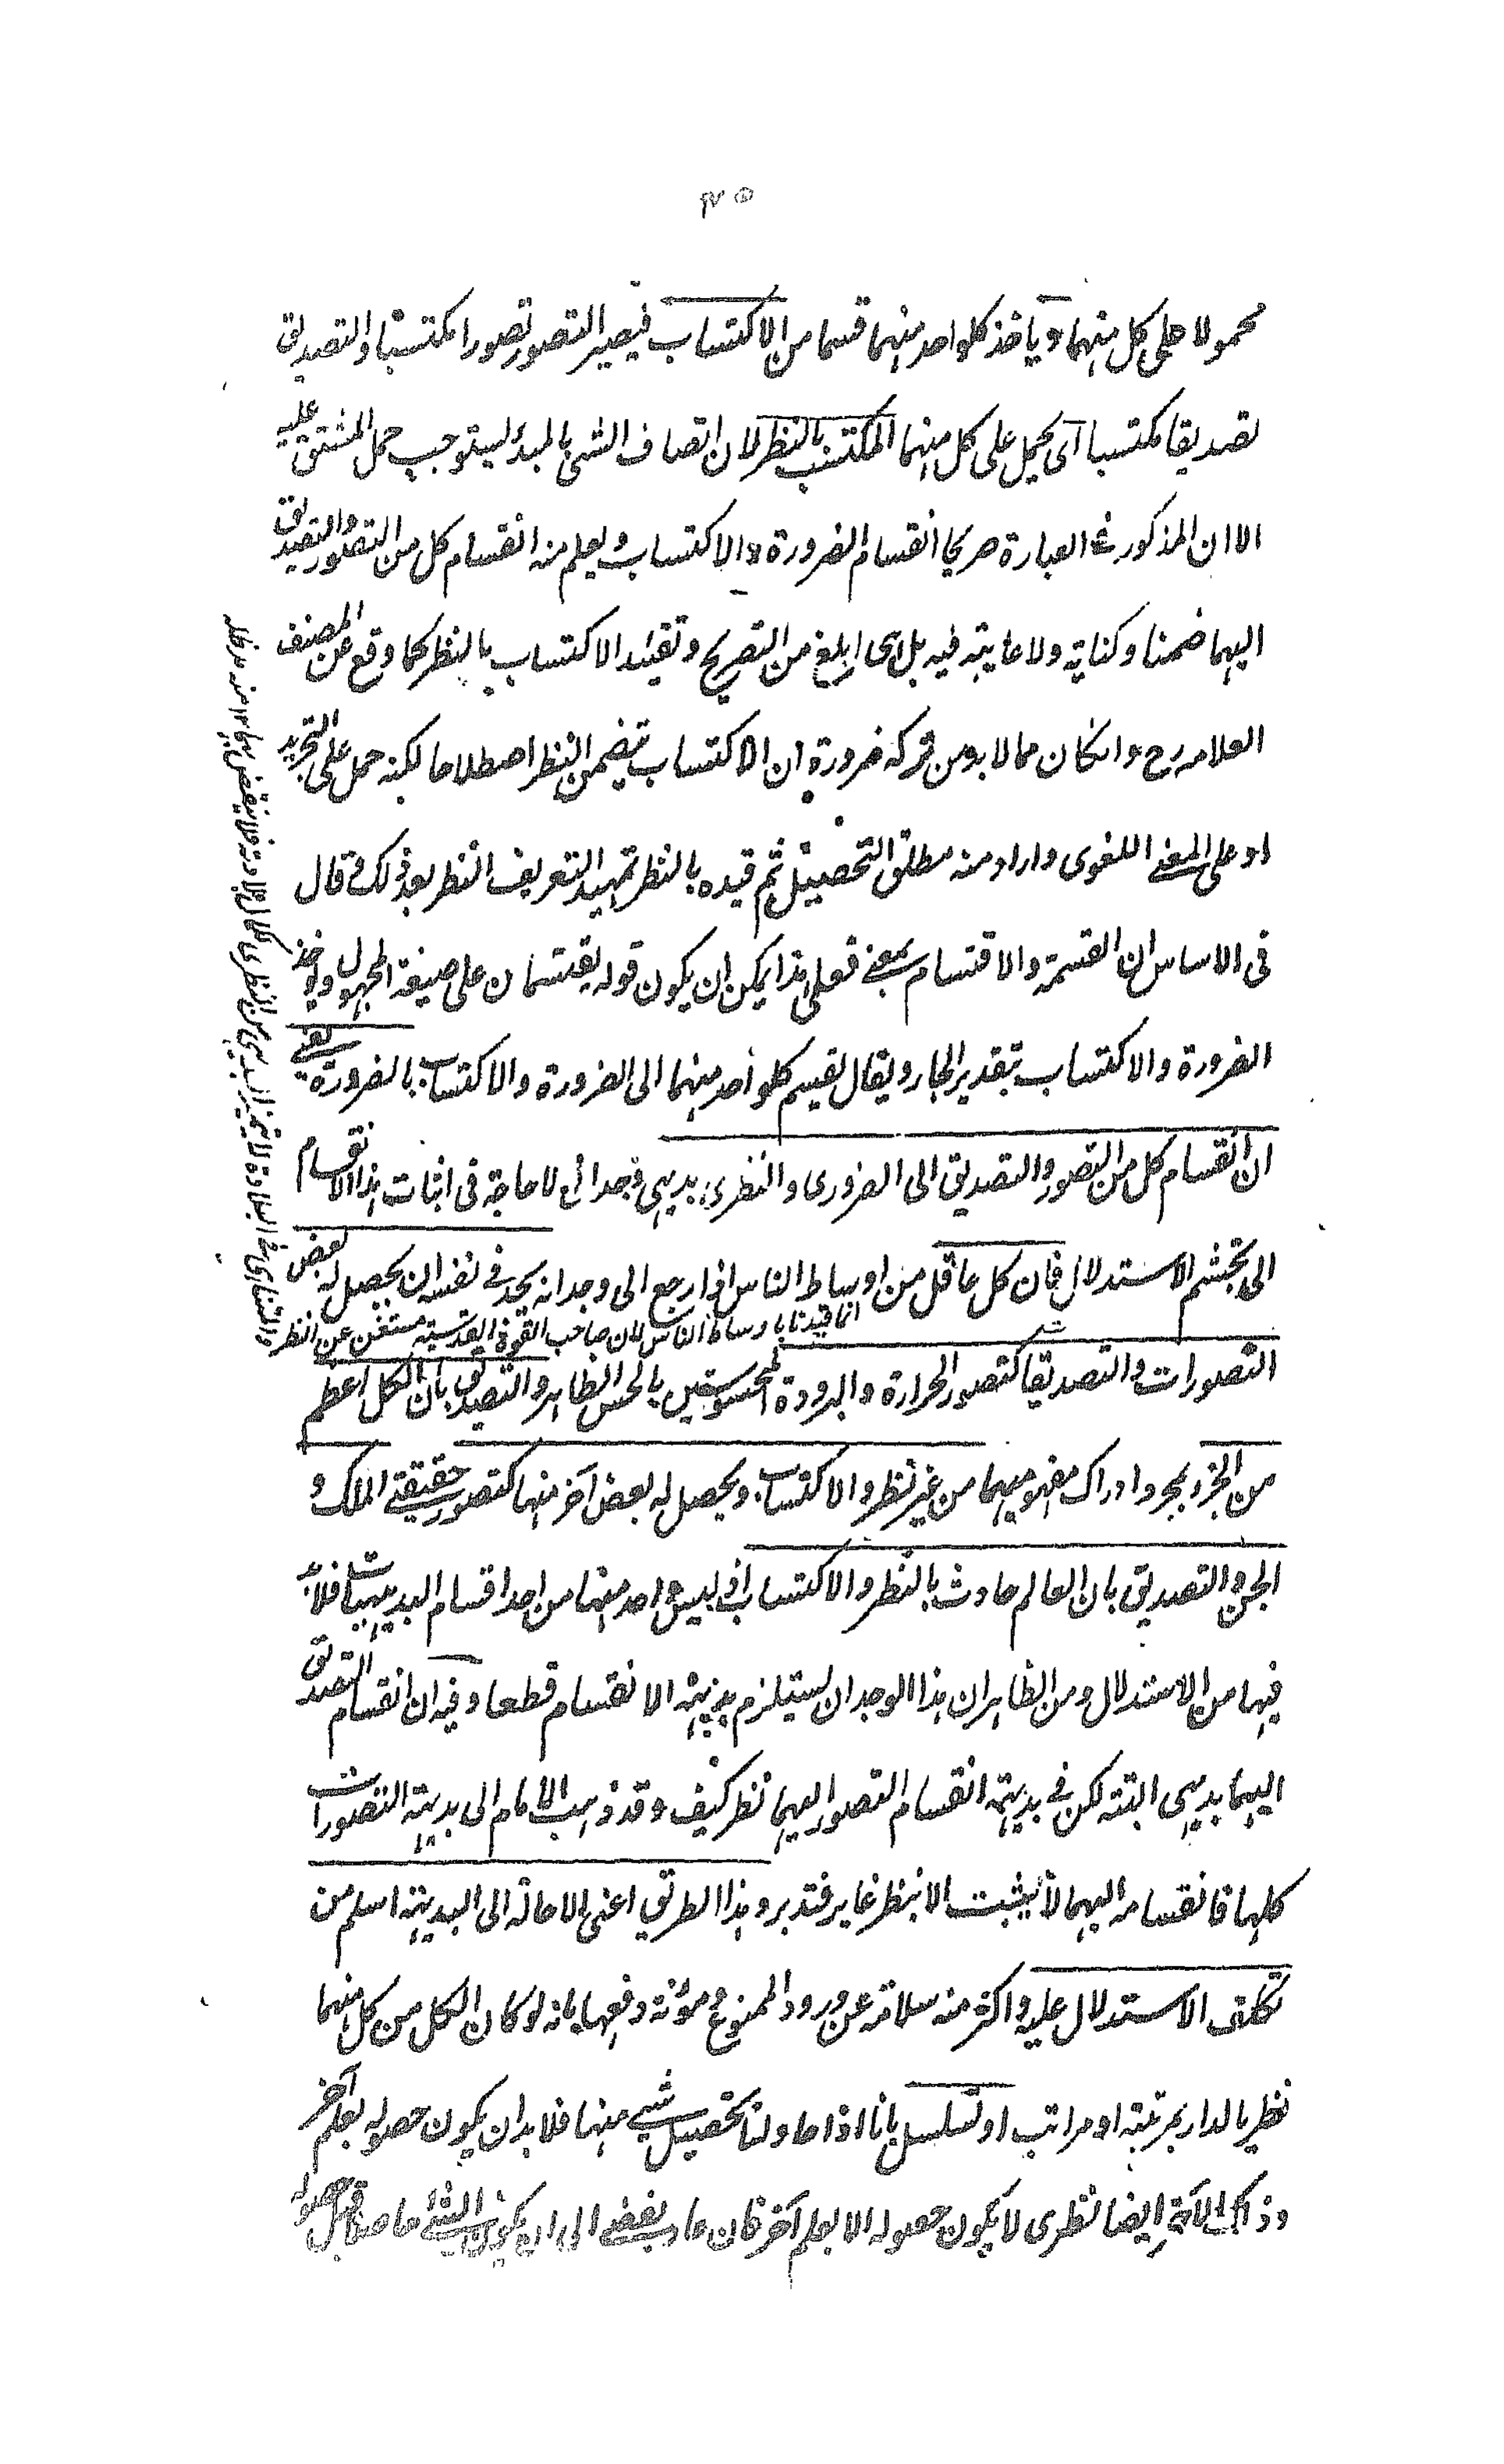 محمولا على كل منهما و ياخذ كلواحد منهما قسما من الاكتساب فيصير التصور تصورا مكتسبا والتصديق
تصديقا مكتسبا اى يحمل على كل منهما المكتسب بالنظر لان اتصاف الشئ بالمبدء يستوجب حمل المشتق عليه
الا ان المذكور فى العبارة صريحا انقسام الضرورة والاكتساب ويعلم منه انقسام كل من التصور والتصديق
اليهما ضمنا وكناية ولا غايبة فيه بل هى ابلغ من التصريح وتقييد الاكتساب بالنظر كما وقع عن المصنف
العلامه رح وانكان مما لا بد من تركه ضرورة ان الاكتساب يتضمن النظر اصطلاحا لكنه حمل على التجريد
او على المعنے اللغوى واراد منه مطلق التحصيل ثم قيده بالنظر تمهيدا لتعريف النظر بعد ذلك وقال
فى الاساس ان القسمة والاقتسام بمعنے فعلى هذا يمكن ان يكون قوله يقتسمان على صيغة المجهول واخذ
الضرورة والاكتساب بتقدير الجار ويقال تقسيم كلواحد منهما الى الضرورة والاكتساب بالضرورة يعنے
ان انقسام كل من التصور والتصديق الى الضرورى والنظرى بديهى وجدانى لا حاجة فى اثبات هذا الانقسام
الى تجشم الاستدلال فان كل عاقل من اوساط الناس اذا رجع الى وجدانه يجد فے نفسه ان يحصل له بعض
انما قيدنا باوساط الناس لان صاحب القوة القدسية مستغن عن النظر
التصورات والتصديقات كتصور الحرارة والبرودة المحسوستين بالحس الظاهر والتصديق بان الكل اعظم
من الجزء بمجرد ادراك مفهوميهما من غير نظر والاكتساب ويحصل له بعض آخر منها كتصور حقيقتے الملك و
الجن والتصديق بان العالم حادث بالنظر والاكتساب اذ ليس واحد منها من احد اقسام البديهيات فلا بد
فيها من الاستدلال ومن الظاهر ان هذا الوجدان يستلزم بديهية الانقسام قطعا وفيه ان انقسام التصديق
اليهما بديهى البتة لكن فے بديهية انقسام التصور اليهما نظر كيف وقد ذهب الامام الى بديهية التصورات
كلها فانقسامه اليهما لا يثبت الا بنظر غاير فتدبر وهذا الطريق اعنى الاحالة الى البديهية اسلم من
تكلف الاستدلال عليه واكثر منه سلامة عن ورود الممنوع ومؤنة دفعها بانه لو كان الكل من كل منهما
نظريا لدار بمرتبة او مراتب او تسلسل بانا اذا حاولنا تحصيل شيے منها فلا بد ان يكون حصوله بعلم آخر
وذلك الآخر ايضا نظرى لا يكون حصوله الا بعلم آخر فان عاد يفضے الى ان يكون الشئے حاصلا قبل حصوله